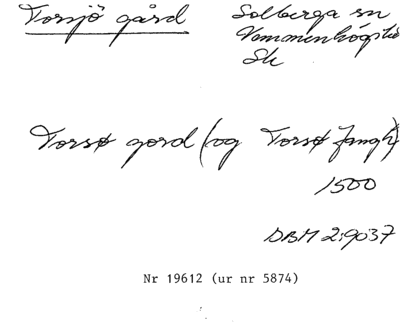 Torsjö gård
Solberga sn
Vemmenhögs hd
Sk
Torsø gord (og Torsø fangh)
1500
DBM 2:9037
Nr 19612 (ur nr 5874)